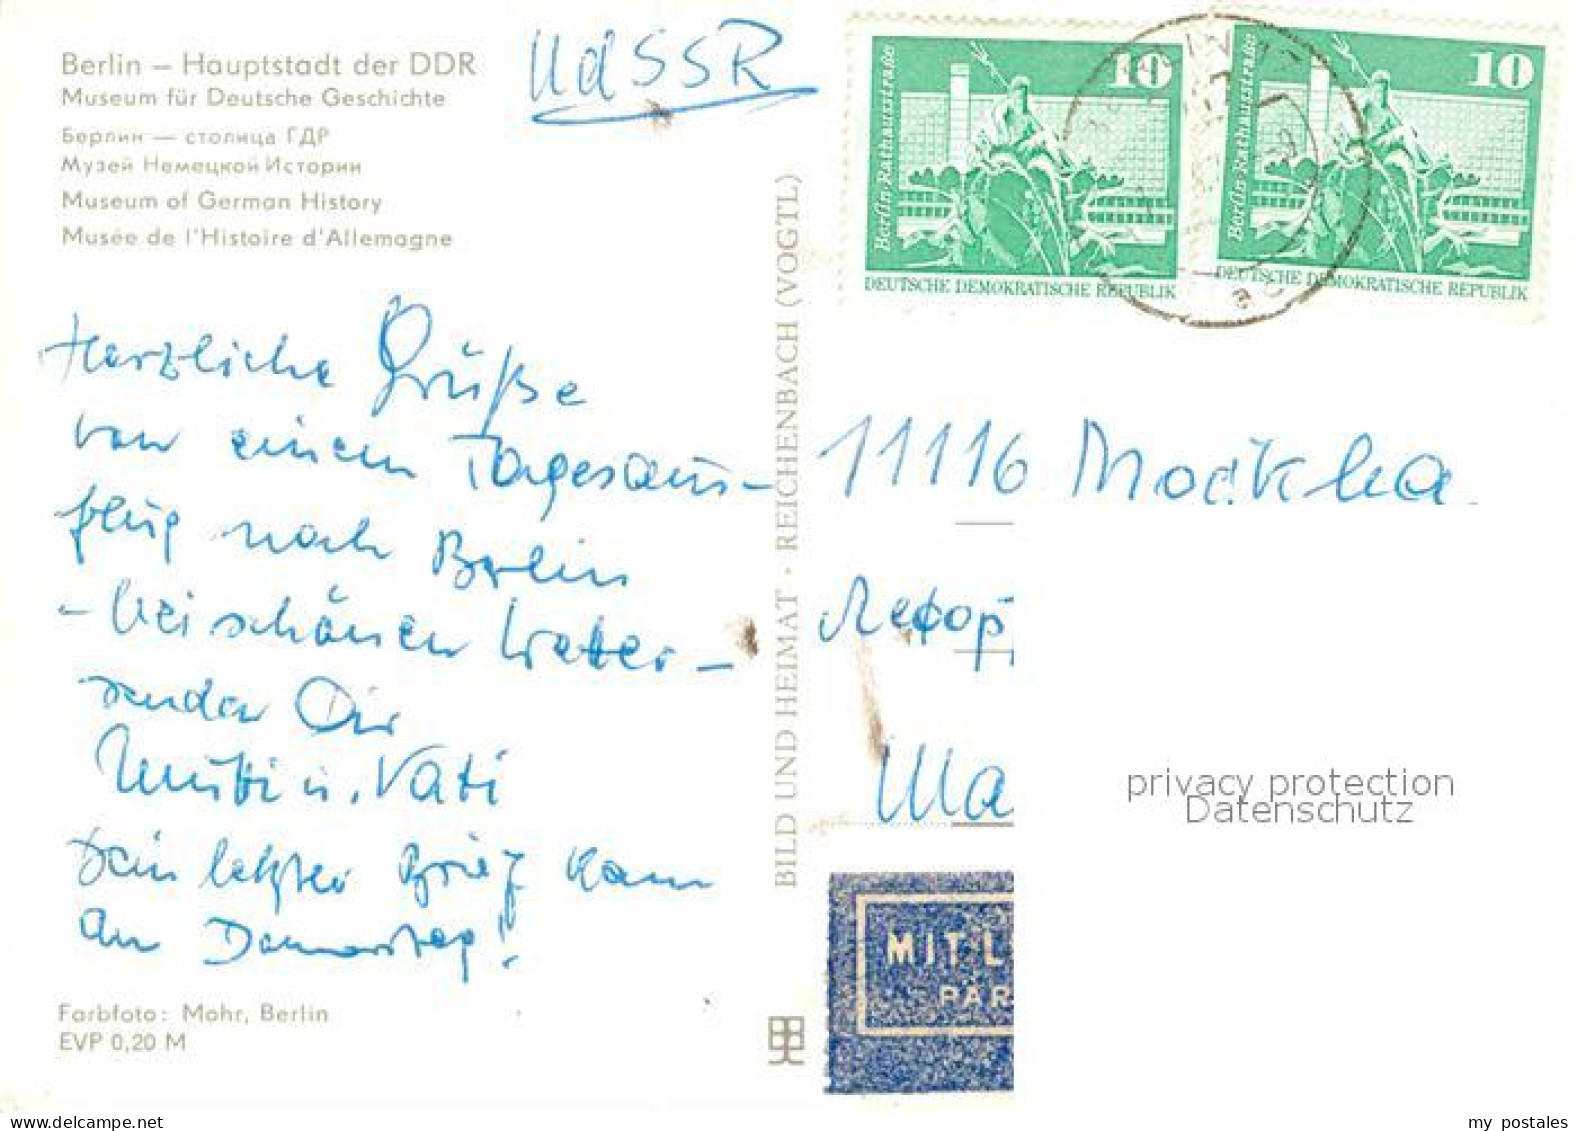 Berlin – Hauptstadt der DDR
Museum für Deutsche Geschichte
Берлин — столица ГДР
Музей Немецкой Истории
Museum of German History
Musée de l'Histoire d'Allemagne
UdSSR
Herzliche Grüße
von einem Tagesaus-
flug nach Berlin
- bei schönem Wetter -
senden Dir
Mutti u. Vati
Dein letzter Brief kam
am Donnerstag!
Farbfoto: Mohr, Berlin
EVP 0,20 M
BILD UND HEIMAT · REICHENBACH (VOGTL)
10
Berlin·Rathausstraße
DEUTSCHE DEMOKRATISCHE REPUBLIK
10
Berlin·Rathausstraße
DEUTSCHE DEMOKRATISCHE REPUBLIK
11116 Москва
Лефор
Ма
MIT L
PAR
privacy protection
Datenschutz
my postales